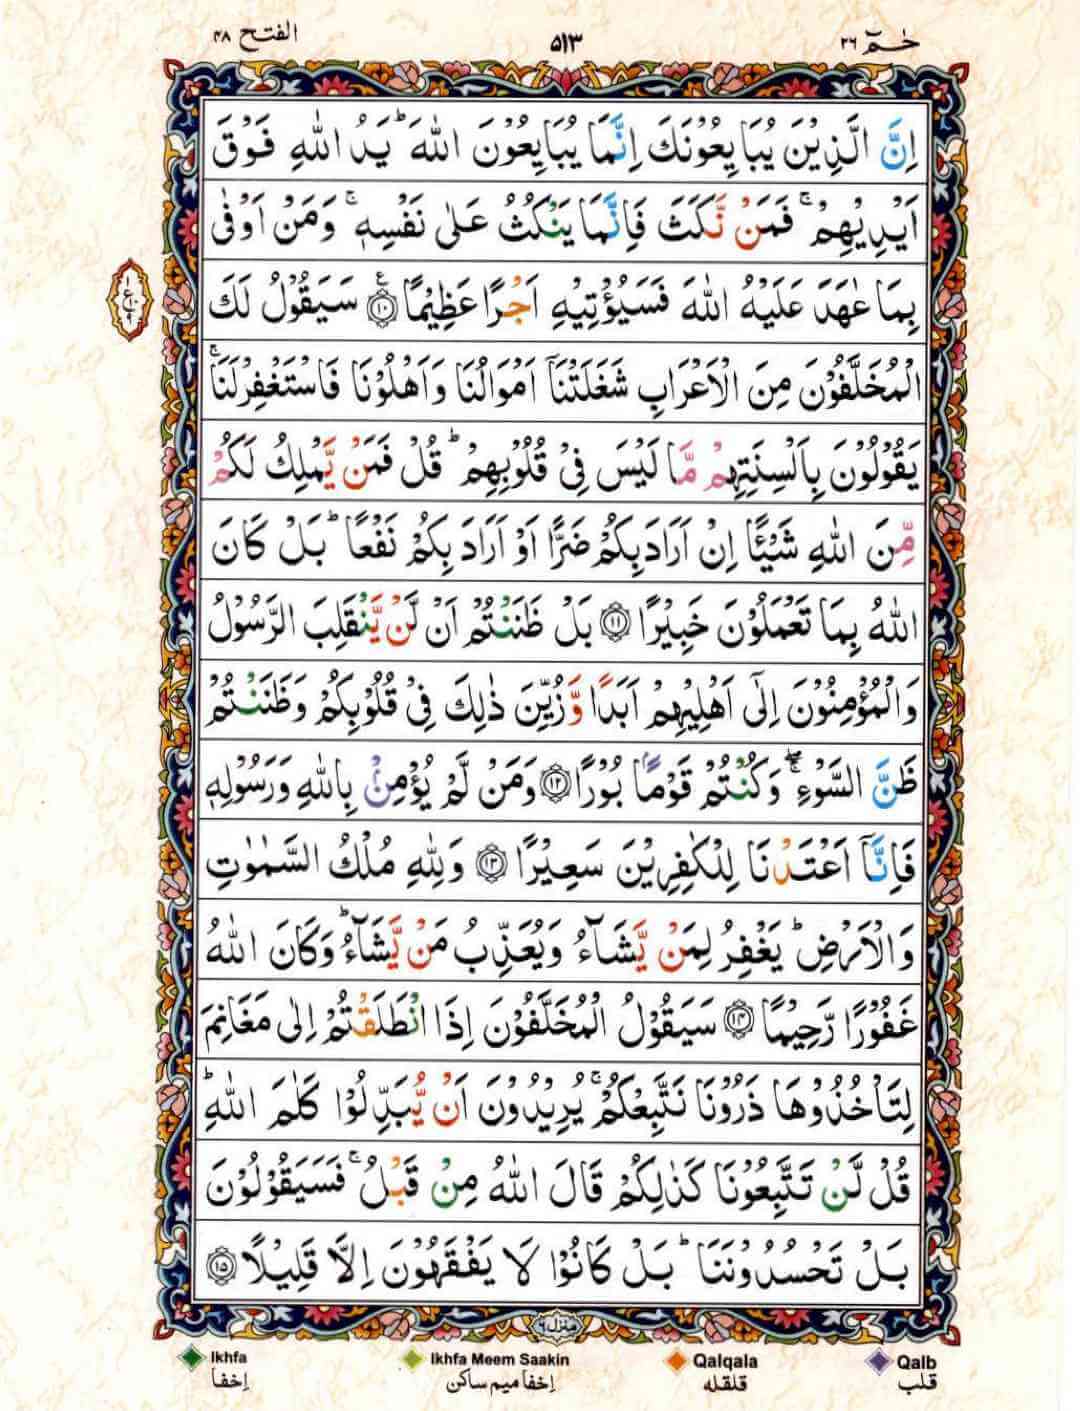 الفتح ٤٨
٥١٣
حٰمٓ ٢٦
اِنَّ الَّذِيْنَ يُبَايِعُوْنَكَ اِنَّمَا يُبَايِعُوْنَ اللّٰهَ ؕ يَدُ اللّٰهِ فَوْقَ
اَيْدِيْهِمْ ۚ فَمَنْ نَّكَثَ فَاِنَّمَا يَنْكُثُ عَلٰى نَفْسِهٖ ۚ وَمَنْ اَوْفٰى
بِمَا عٰهَدَ عَلَيْهُ اللّٰهَ فَسَيُؤْتِيْهِ اَجْرًا عَظِيْمًا ۧ ۝١٠ سَيَقُوْلُ لَكَ
الْمُخَلَّفُوْنَ مِنَ الْاَعْرَابِ شَغَلَتْنَاۤ اَمْوَالُنَا وَاَهْلُوْنَا فَاسْتَغْفِرْلَنَا ۚ
يَقُوْلُوْنَ بِاَلْسِنَتِهِمْ مَّا لَيْسَ فِيْ قُلُوْبِهِمْ ؕ قُلْ فَمَنْ يَّمْلِكُ لَكُمْ
مِّنَ اللّٰهِ شَيْئًا اِنْ اَرَادَ بِكُمْ ضَرًّا اَوْ اَرَادَ بِكُمْ نَفْعًا ؕ بَلْ كَانَ
اللّٰهُ بِمَا تَعْمَلُوْنَ خَبِيْرًا ۝١١ بَلْ ظَنَنْتُمْ اَنْ لَّنْ يَّنْقَلِبَ الرَّسُوْلُ
وَالْمُؤْمِنُوْنَ اِلٰٓى اَهْلِيْهِمْ اَبَدًا وَّزُيِّنَ ذٰلِكَ فِيْ قُلُوْبِكُمْ وَظَنَنْتُمْ
ظَنَّ السَّوْءِ ۖۚ وَكُنْتُمْ قَوْمًاۢ بُوْرًا ۝١٢ وَمَنْ لَّمْ يُؤْمِنْۢ بِاللّٰهِ وَرَسُوْلِهٖ
فَاِنَّاۤ اَعْتَدْنَا لِلْكٰفِرِيْنَ سَعِيْرًا ۝١٣ وَلِلّٰهِ مُلْكُ السَّمٰوٰتِ
وَالْاَرْضِ ؕ يَغْفِرُ لِمَنْ يَّشَآءُ وَيُعَذِّبُ مَنْ يَّشَآءُ ؕ وَكَانَ اللّٰهُ
غَفُوْرًا رَّحِيْمًا ۝١٤ سَيَقُوْلُ الْمُخَلَّفُوْنَ اِذَا انْطَلَقْتُمْ اِلٰى مَغَانِمَ
لِتَاْخُذُوْهَا ذَرُوْنَا نَتَّبِعْكُمْ ۚ يُرِيْدُوْنَ اَنْ يُّبَدِّلُوْا كَلٰمَ اللّٰهِ ؕ
قُلْ لَّنْ تَتَّبِعُوْنَا كَذٰلِكُمْ قَالَ اللّٰهُ مِنْ قَبْلُ ۚ فَسَيَقُوْلُوْنَ
بَلْ تَحْسُدُوْنَنَا ؕ بَلْ كَانُوْا لَا يَفْقَهُوْنَ اِلَّا قَلِيْلًا ۝١٥
منزل ٦
Ikhfa
اِخفا
Ikhfa Meem Saakin
اِخفا میم ساکن
Qalqala
قلقله
Qalb
قلب